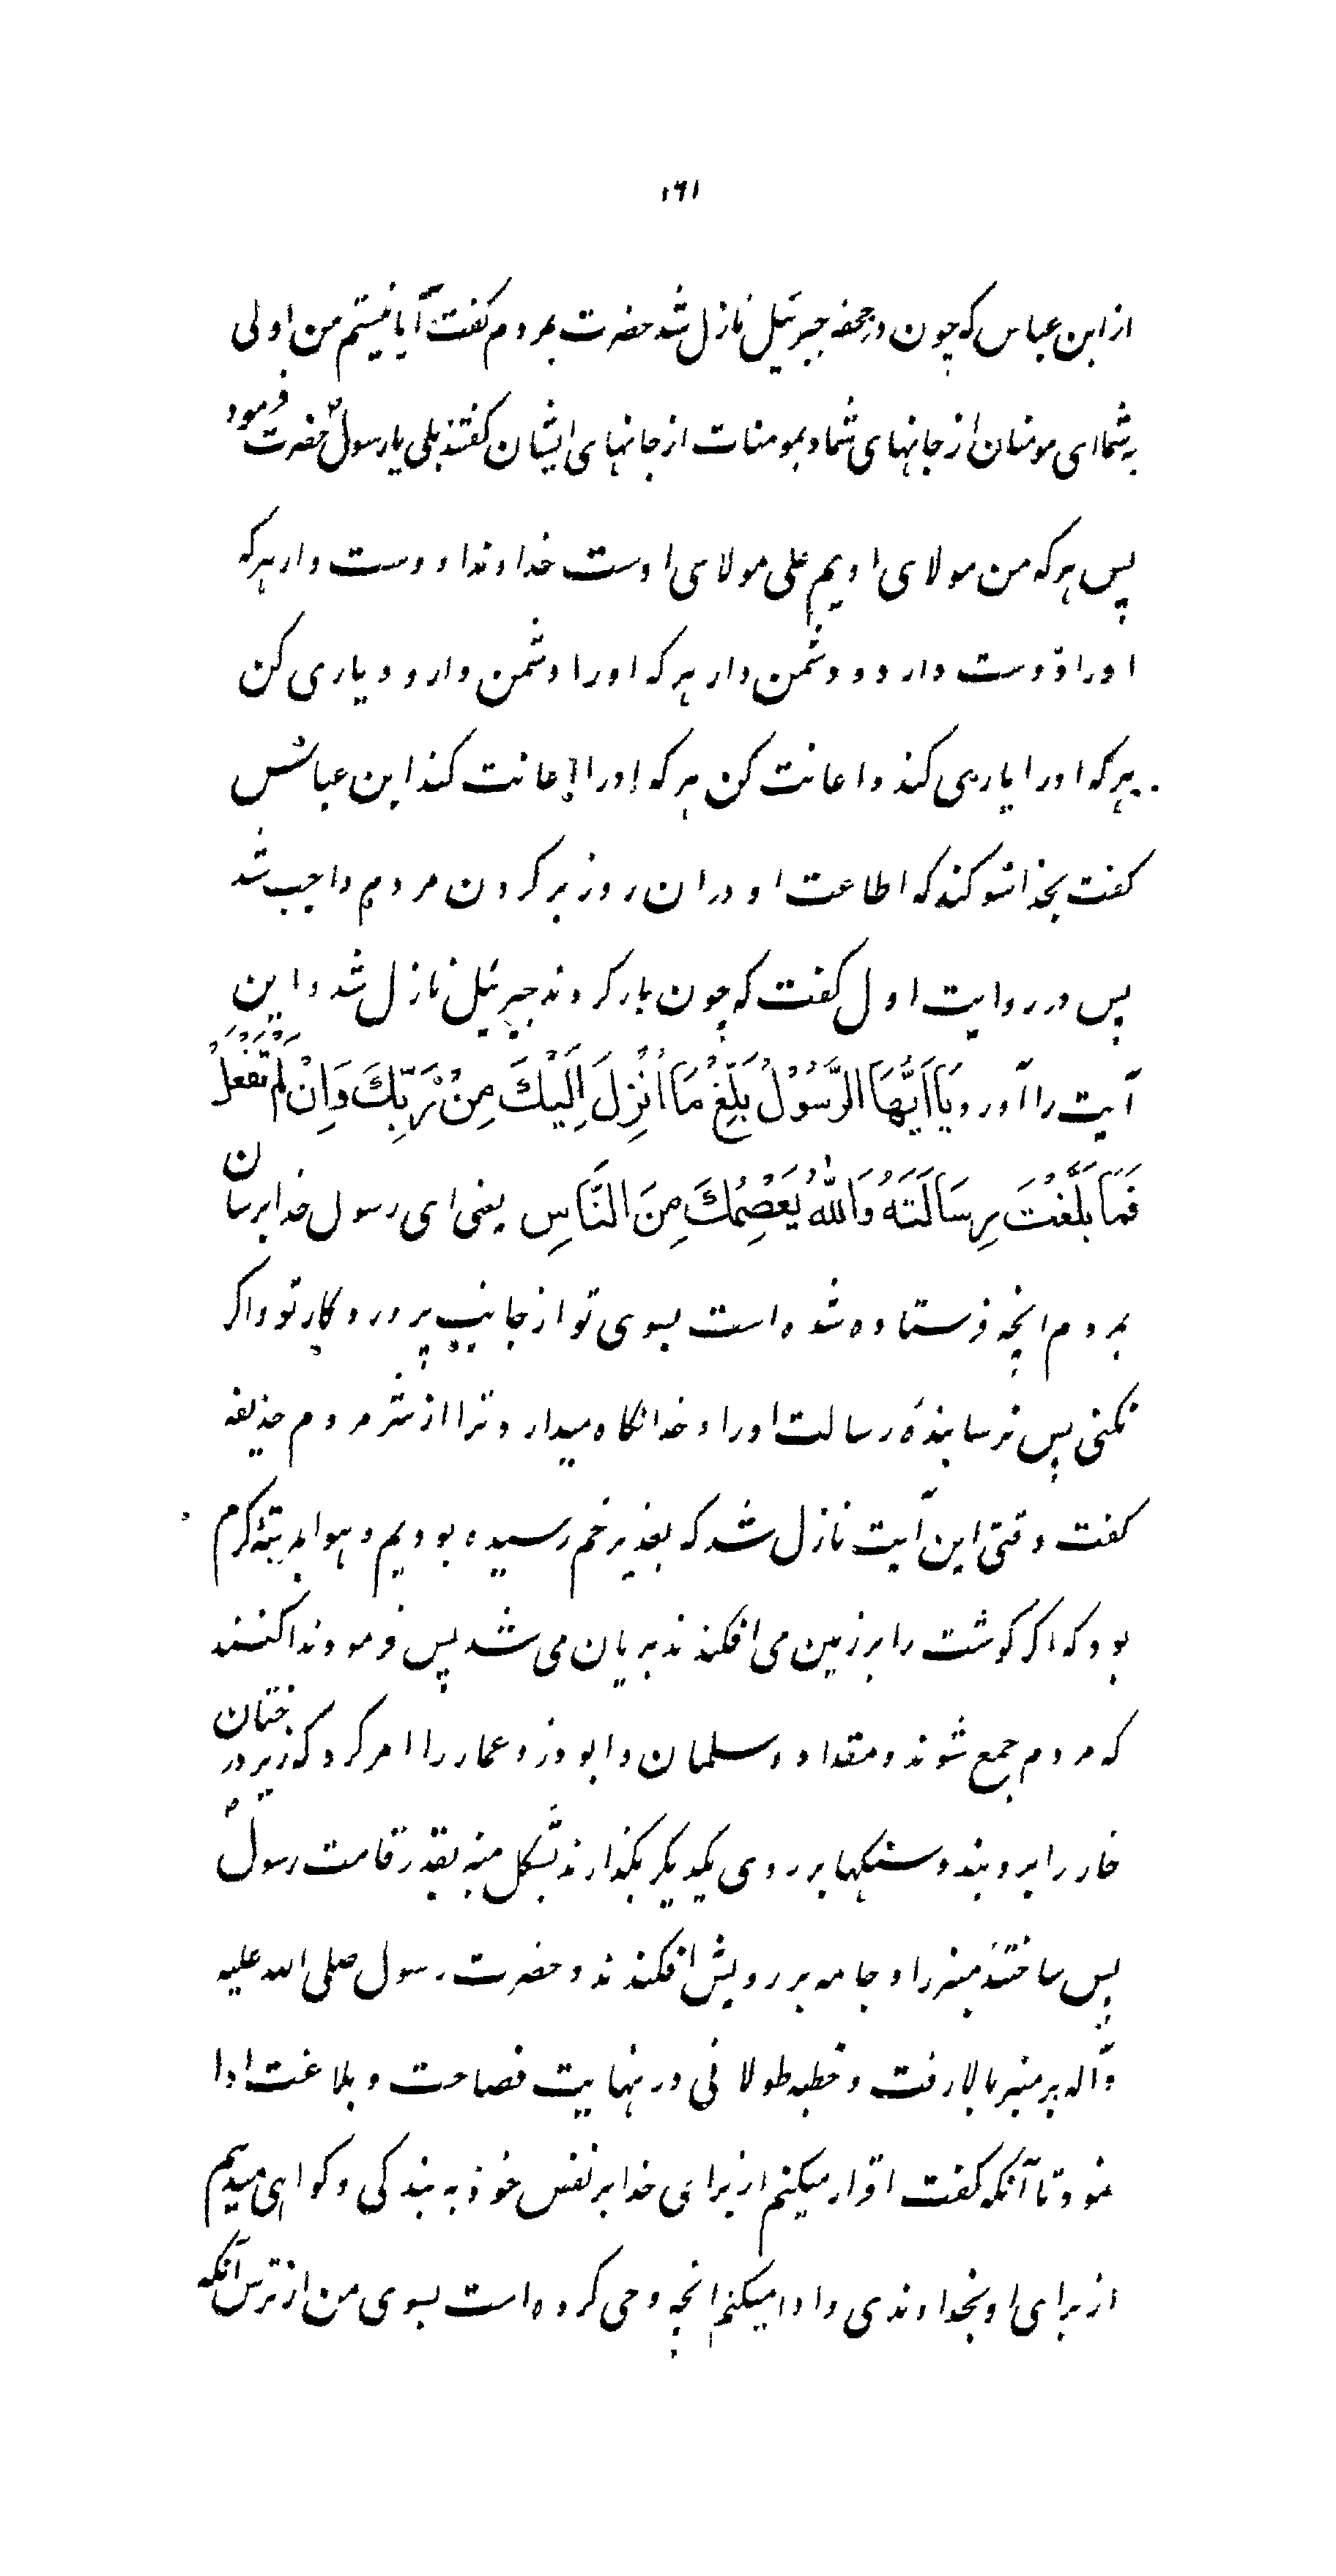 ۱۶۱
از ابن عباس که چون در جحفه جبرئیل نازل شد حضرت بمردم کفت آیا نیستم من اولی
به شما ای مومنان از جانهای شما و بمومنات از جانهای ایشان کفتند بلی یا رسول حضرت فرمود
پس هرکه من مولای اویم علی مولای اوست خداوندا دوست دار هرکه
اورا دوست دارد و دشمن دار هرکه اورا دشمن دارد و یاری کن
هرکه اورا یاری کند و اعانت کن هرکه اورا اعانت کند ابن عباس
کفت بخدا سوکند که اطاعت او دران روز بر کردن مردم واجب شد
پس در روایت اول کفت که چون بار کردند جبرئیل نازل شد و این
آیت را آورد یَا اَیُّهَا الرَّسُوْلُ بَلِّغْ مَا اُنْزِلَ اِلَیْكَ مِنْ رَبِّكَ وَاِنْ لَمْ تَفْعَلْ
فَمَا بَلَّغْتَ رِسَالَتَهُ وَاللهُ یَعْصِمُكَ مِنَ النَّاسِ یعنی ای رسول خدا برسان
بمردم انچه فرستاده شده است بسوی تو از جانب پروردکار تو و اکر
نکنی پس نرسانیدهٔ رسالت اورا و خدا نکاه میدارد ترا از شر مردم حذیفه
کفت وقتی این آیت نازل شد که بغدیر خم رسیده بودیم و هوا بمرتبهٔ کرم
بود که اکر کوشت را بر زمین می افکندند بریان می شد پس فرمود ندا کنند
که مردم جمع شوند و مقداد و سلمان و ابوذر و عمار را امر کرد که زیر درختان
خار را بروبند و سنکها بر روی یکدیکر بکذارند بشکل منبر بقدر قامت رسول ص
پس ساختند منبر را و جامه بر رویش افکندند و حضرت رسول صلی الله علیه
وآله بر منبر بالا رفت و خطبه طولانی در نهایت فصاحت و بلاغت ادا
نمود تا آنکه کفت اقرار میکنم از برای خدا بر نفس خود به بندکی و کواهی میدهم
از برای او بخداوندی و ادا میکنم انچه وحی کرده است بسوی من از ترس آنکه